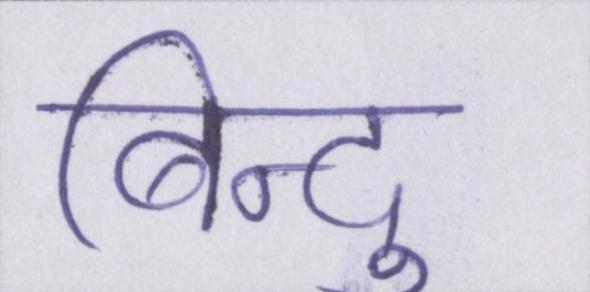 बिन्दु